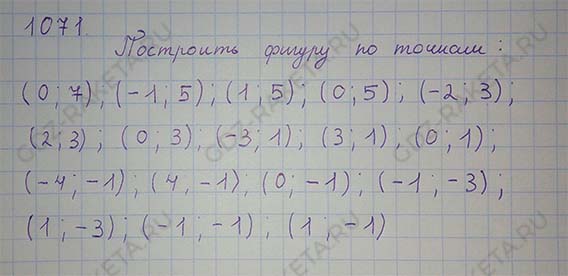 1071.
Построить фигуру по точкам:
(0; 7), (-1; 5); (1; 5); (0; 5); (-2; 3);
(2; 3); (0; 3); (-3; 1); (3; 1), (0; 1);
(-4; -1); (4, -1), (0; -1); (-1; -3);
(1; -3); (-1; -1); (1; -1)
GDZ-RAKETA.RU